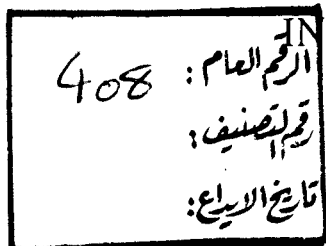 IN
الرقم العام: 408
رقم التصنيف:
تاريخ الايداع: